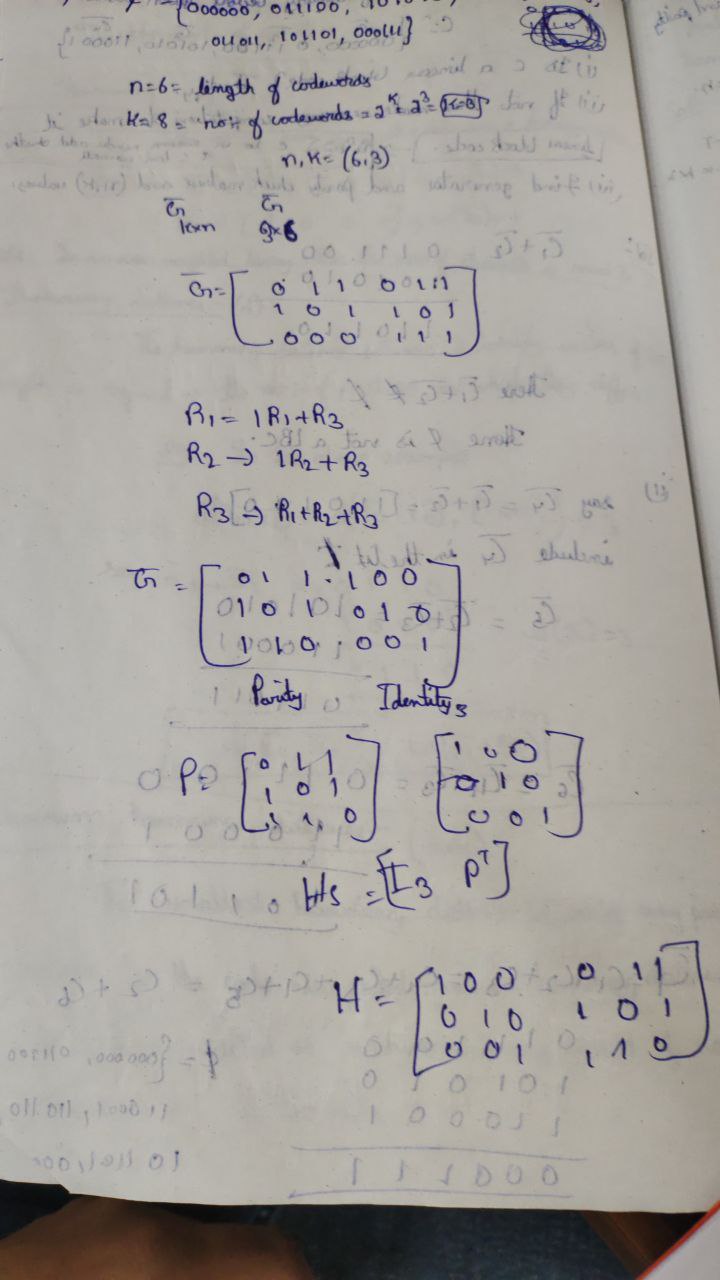 {000000, 011100,
011011, 101101, 000111}
n=6= length of codewords
K= 8 = no. of codewords = 2^K = 2^3 = K=3
n, K = (6,3)
G G
kxn 3x6
G = [ 0 1 1 0 1 1 ]
1 0 1 1 0 1
0 0 0 1 1 1
R1 = 1R1+R3
R2 → 1R2+R3
R3 → R1+R2+R3
G = [ 0 1 1 1 0 0 ]
1 0 1 0 1 0
1 1 0 0 0 1
Parity Identity3
P= [ 0 1 1 ] [ 1 0 0 ]
1 0 1 0 1 0
1 1 0 0 0 1
Hs = [I3 P^T]
H = [ 1 0 0 0 1 1 ]
0 1 0 1 0 1
0 0 1 1 1 0